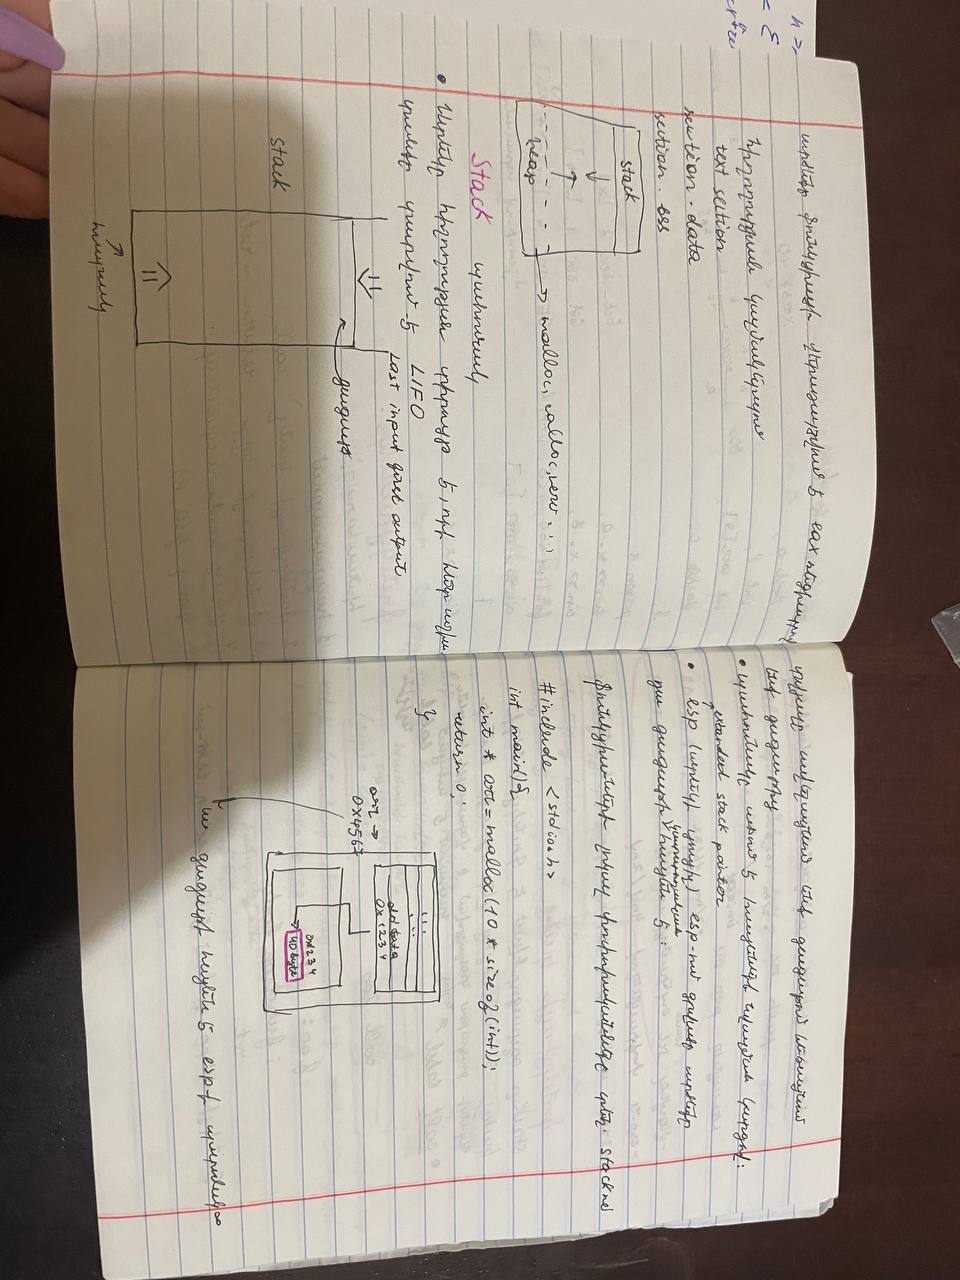 արժեքը ֆունկցիայի վերադարձվում է eax ռեգիստրով
հիշողության կազմակերպում
text section
section .data
section .bss
stack
heap
malloc, calloc, new ...
Stack պահունակ
Ստեկը հիշողության տիրույթ է, որի հետ աշխա
տանքը տարվում է LIFO
Last input first output
գագաթ
stack
հատակ
տվյալը ավելացնում ենք գագաթում հեռացնում
ենք գագաթից
պահունակը աճում է հասցեների նվազման կարգով:
extanded stack pointer
esp (ստեկի ցուցիչ) esp-ում գրված արժեքը
դա գագաթի հասցեն է:
ֆունկցիաների լոկալ փոփոխականները stack
#include <stdio.h>
int main(){
int * arr = malloc(10 * sizeof(int));
return 0;
}
...
...
old data
0x1234
arr →
0x4567
0x1234
40 byte
սա գագաթի հասցեն է esp-ի